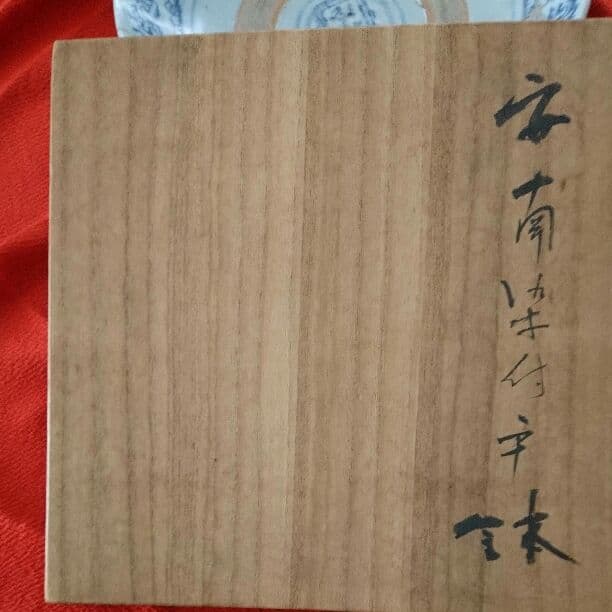 安南染付平鉢